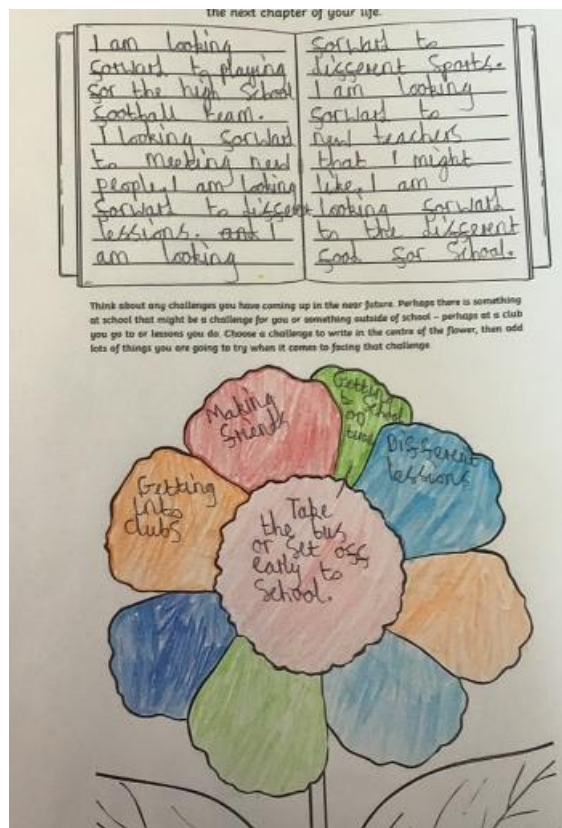 the next chapter of your life.
I am looking
forward to playing
for the high School
football team.
I looking forward
to meeking new
people, I am looking
forward to different
lessons. and I
am looking
forward to
different Sports.
I am looking
forward to
new teachers
that I might
like, I am
looking forward
to the different
food for School.
Think about any challenges you have coming up in the near future. Perhaps there is something
at school that might be a challenge for you or something outside of school – perhaps at a club
you go to or lessons you do. Choose a challenge to write in the centre of the flower, then add
lots of things you are going to try when it comes to facing that challenge
Making
friends
Getting
to school
on
time
Different
lessions
Getting
into
clubs
Take
the bus
or set off
early to
School.